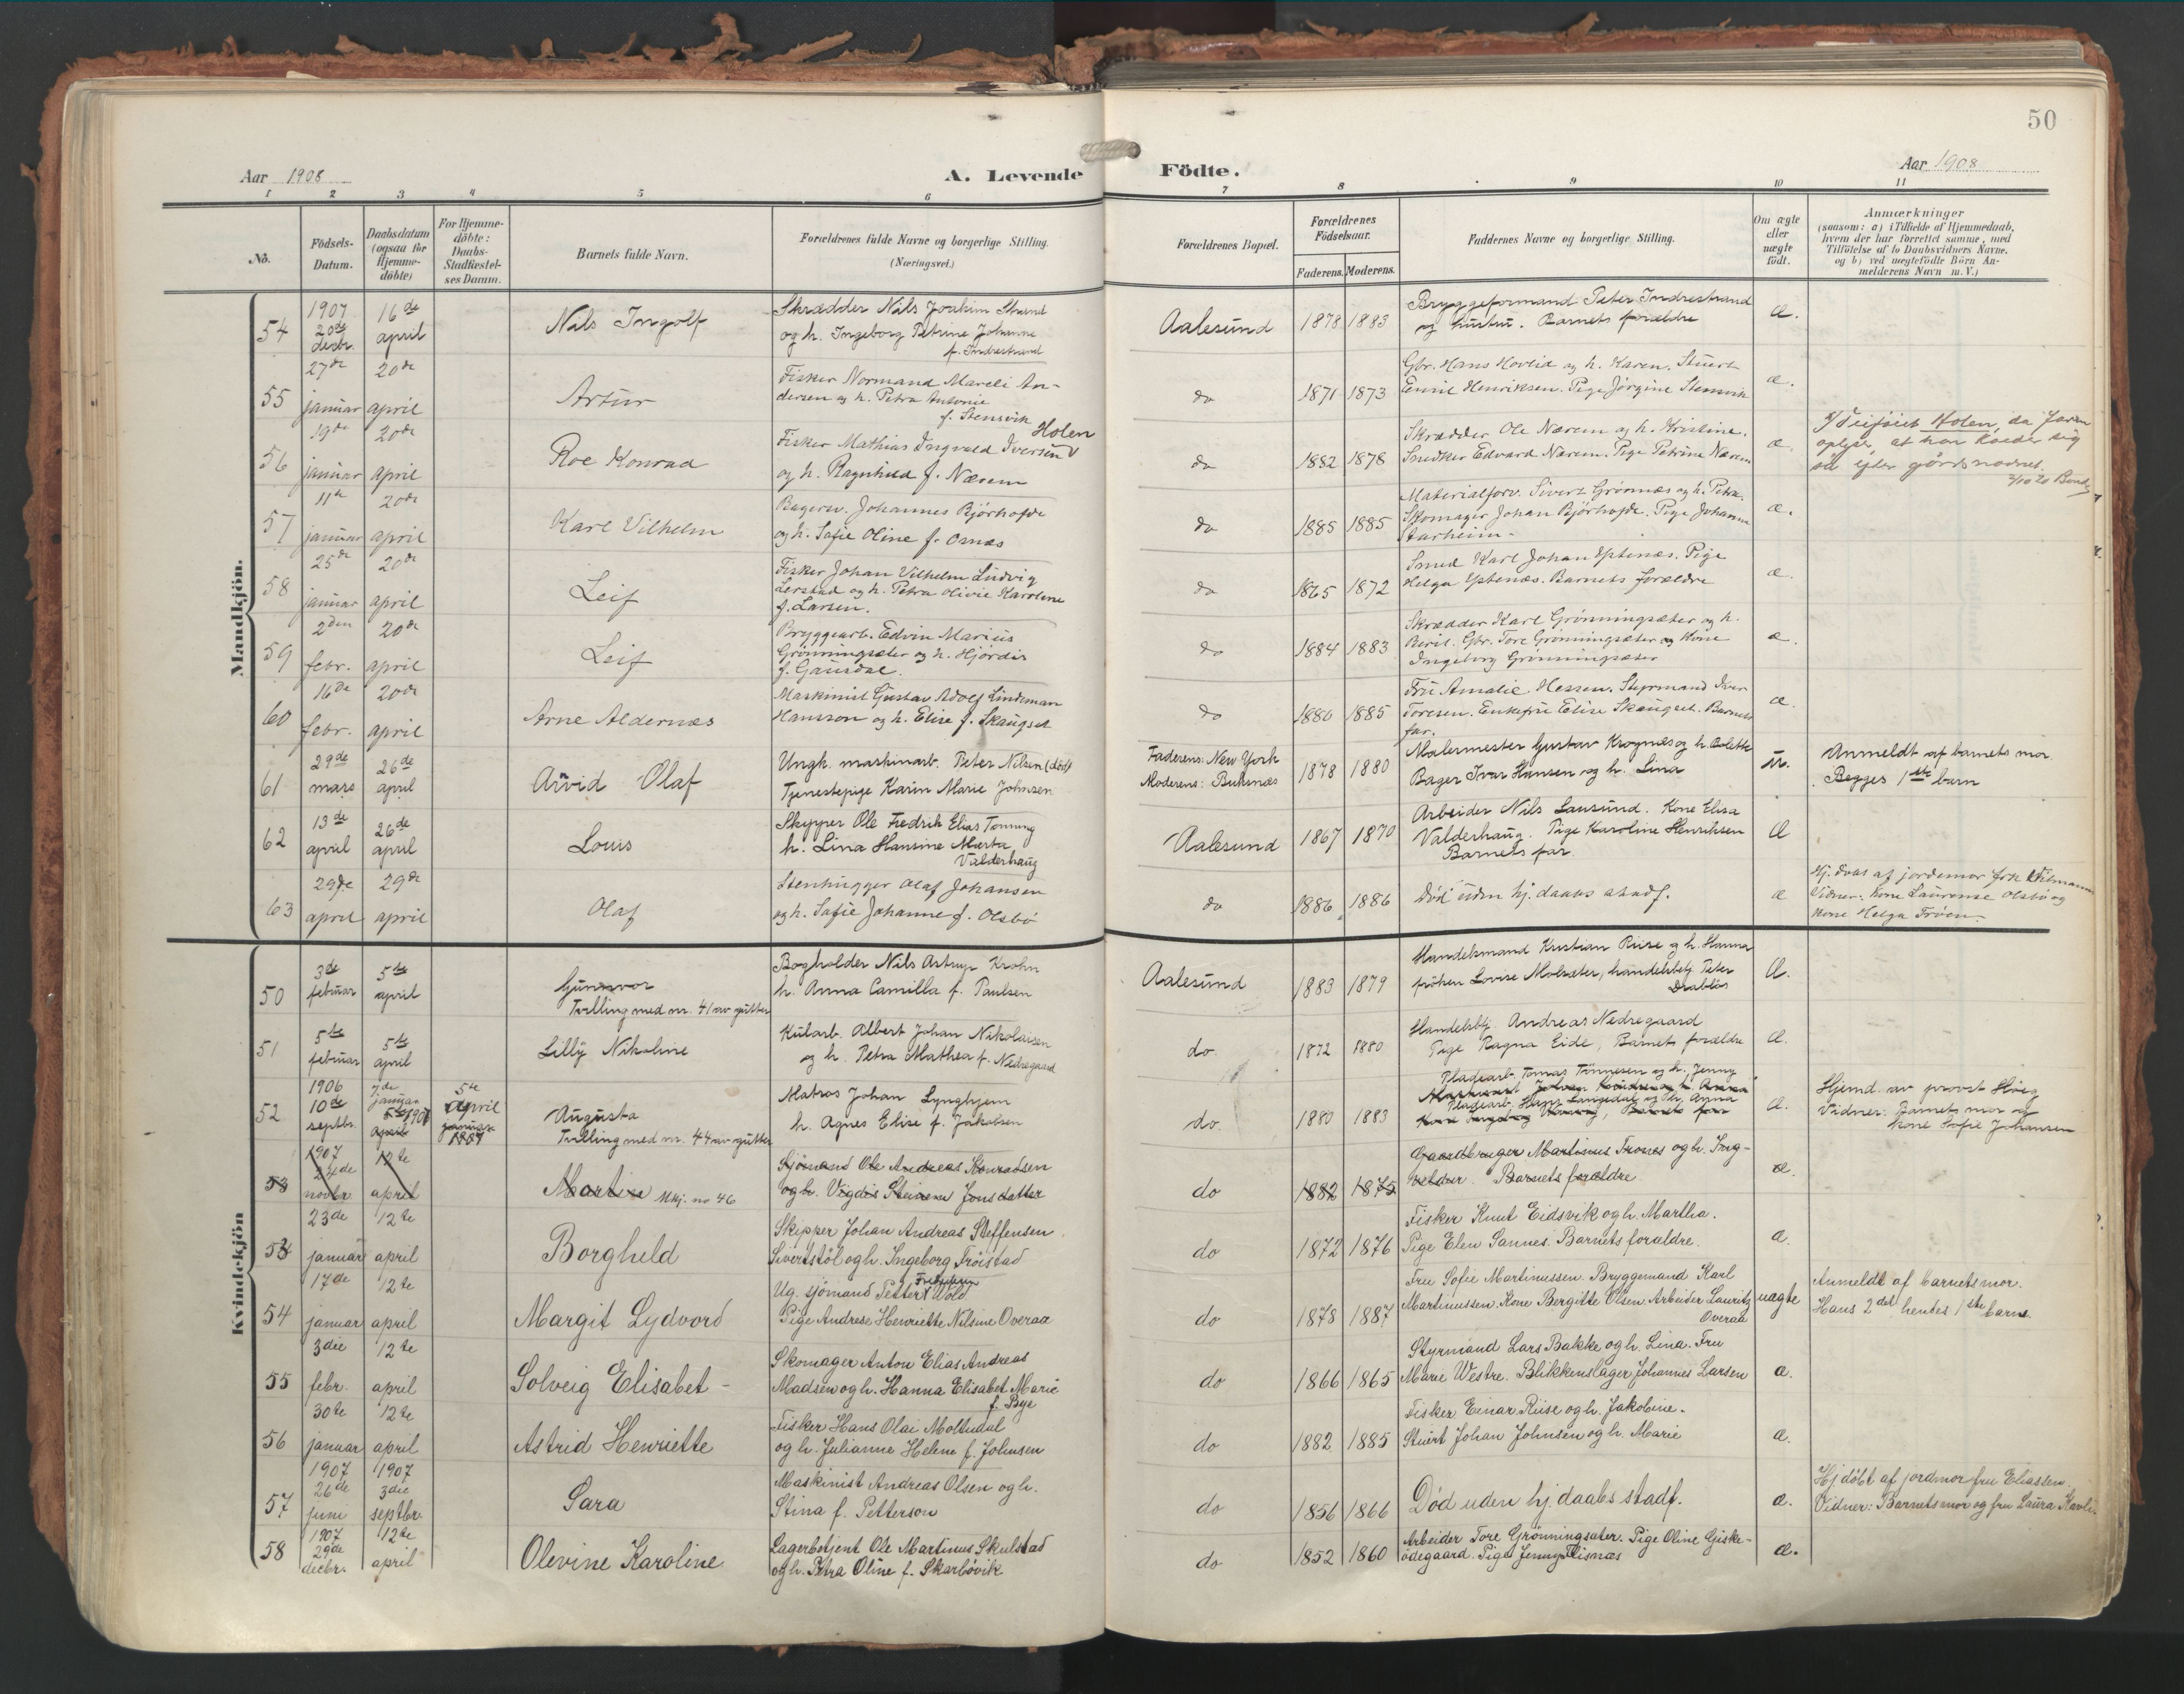 50
Aar 1908
A. Levende
Födte.
Aar 1908
1 2 3 4 5 6 7 8 9 10 11
No.
Födsels-
Datum.
Daabsdatum
(ogsaa for
Hjemme-
döbte)
For Hjemme-
döbte:
Daabs-
Stadfæstel-
ses Datum.
Barnets fulde Navn.
Forældrenes fulde Navne og borgerlige Stilling.
(Næringsvei.)
Forældrenes Bopæl.
Forældrenes
Födselsaar.
Faderens. Moderens.
Faddernes Navne og borgerlige Stilling.
Om ægte
eller
uægte
födt.
Anmærkninger
(saasom: a) i Tilfælde af Hjemmedaab,
hvem der har forrettet samme, med
Tilföielse af to Daabsvidners Navne.
og b) ved uegtefödte Börn An-
melderens Navn m. V.)
Mandkjön.
54
1907
20de
decbr.
16de
april
Nils Ingolf
Skrædder Nils Joakim Strand
og h. Ingeborg Petrine Johanne
f. Indrestrand
Aalesund
1878 1883
Bryggeformand Peter Indrestrand
og hustru. Barnets forældre
Æ.
55
27de
januar
20de
april
Artur
Fisker Normand Mareli An-
dersen og h. Petra Antonie
f. Stensvik
do
1871 1873
Gbr. Hans Hovlid og h. Karen. Stuert
Emil Henriksen. Pige Jørgine Stensvik
æ.
56
19de
januar
20de
april
Roe Konrad
Holen
Fisker Mathias Ingvald Iversen V
og h. Ragnhild f. Nærem
do
1882 1878
Skrædder Ole Nærem og h. Kristine.
Snedker Edvard Nærem. Pige Petrine Nærem
æ.
V Tilføiet Holen, da faren
oplyser, at han kalder sig
så efter gårdsnavnet.
57
11te
januar
20de
april
Karl Vilhelm
Bagersv. Johannes Bjørhovde
og h. Sofie Oline f. Osnes
do
1885 1885
Materialforv. Sivert Grønnæs og h. Petra.
Skomager Johan Bjørhovde. Pige Johanne
Starheim.
æ.
58
25de
januar
20de
april
Leif
Fisker Johan Vilhelm Ludvig
Lerstad og h. Petra Olivie Karoline
f. Larsen.
do
1865 1872
Smed Karl Johan Eptenæs. Pige
Helga Eptenæs. Barnets forældre
æ.
59
2den
febr.
20de
april
Leif
Bryggearb. Edvin Marius
Grönningsæter og h. Hjördis
f. Gausdal.
do
1884 1883
Skrædder Karl Grönningsæter og h.
Beril. Gbr. Tore Grönningsæter og Kone
Ingeborg Grönningsæter
æ.
60
16de
febr.
20de
april
Arne Aldernæs
Maskinist Gustav Adolf Lindeman
Hansson og h. Elise f. Skaugset
do
1880 1885
Fru Amalie Hessen. Styrmand Iver
Toresen. Enkefru Elise Skaugset. Barnets
far.
æ.
61
29de
mars
26de
april
Arvid Olaf
Ungk. maskinarb. Peter Nilsen (död)
Tjenestepige Karin Marie Johnsen
Faderens: New York
Moderens: Buksnæs
1878 1880
Malermester Gustav Krognæs og h. Bolette
Bager Ivar Hansen og h. Lina
u.
Anmeldt af barnets mor
Begges 1ste barn
62
13de
april
26de
april
Louis
Skipper Ole Fredrik Elias Tonning
h. Lina Hansine Marta
Valderhaug
Aalesund
1867 1870
Arbeider Nils Lausund. Kone Elisa
Valderhaug. Pige Karoline Henriksen
Barnets far.
Æ
63
29de
april
29de
april
Olaf
Stenhugger Olaf Johansen
og h. Sofie Johanne f. Olsbö
do
1886 1886
Död uden hj. daabs stadf.
æ
Hj. døbt af jordemor frk
Vidner: Kone Laurense Olsbö og
Kone Helga Tröen.
Kvindekjön
50
3de
februar
5te
april
Gunvor
Tvilling med nr. 41 av gutter
Bogholder Nils Astrup Krohn
h. Anna Camilla f. Paulsen
Aalesund
1883 1879
Handelsmand Kristian Riise og h. Hanna
fröken Lovise Molsæter, handelsbetj. Peter
Drabløs
Æ.
51
5te
februar
5te
april
Lilly Nikoline
Kularb. Albert Johan Nikolaisen
og h. Petra Mathea f. Nedregaard
do
1872 1880
Handelsbtj. Andreas Nedregaard
Pige Ragna Eide, Barnets forældre
Æ.
52
1906
10de
septbr.
januar
1907
april
5te
april
januar
1907
Augusta
Tvilling med nr. 44 av gutter
Matros Johan Lynghjem
h. Agnes Elise f. Jakobsen
do.
1880 1883
Pladearb. Tomas Tönnesen og h. Jenny
Pladearb. Hans Langedal og h. Anna
Æ.
Hjemd. av provst Höeg
Vidner: Barnets mor og
Kone Sofie Johansen
53
1907
24de
novbr.
12te
april
Martine Mkj. no 46
Sjömand Ole Andreas Konradsen
og h. Vigdis Steinem Jonsdatter
do
1882 1875
Gaardbruger Martinus Frones og h. Ing-
Barnets forældre.
æ.
53
23de
januar
12te
april
Borghild
Skipper Johan Andreas Steffensen
Sivertstöl og h. Ingeborg Tröistad
do
1872 1876
Fisker Knut Eidsvik og h. Martha.
Pige Elen Sannes. Barnets forældre.
æ.
54
17de
januar
12te
april
Margit Lydvord
Fredriksen
Ug. sjömand Petter V Wold
Pige Andrese Henriette Nilsine Overaa
do
1878 1887
Fru Sofie Martinussen. Bryggemand Karl
Martinussen. Kone Bergitte Olsen. Arbeider Lauritz
Overaa
uægte
Anmeldt af barnets mor.
Hans 2det hendes 1ste barn.
55
3die
febr.
12te
april
Solveig Elisabet -
Skomager Anton Elias Andreas
Madsen og h. Hanna Elisabet Marie
f. Bye
do
1866 1865
Styrmand Lars Bakke og h. Lina. Fru
Marie Westre. Blikkenslager Johannes Larsen
æ.
56
30te
januar
12te
april
Astrid Henriette
Fisker Hans Olai Moltudal
og h. Julianne Helene f. Johnsen
do
1882 1885
Fisker Einar Riise og h. Jakobine.
Stuert Johan Johnsen og h. Marie
æ.
57
1907
26de
juni
1907
3die
septbr.
Sara
Maskinist Andreas Olsen og h.
Stina f. Petterson
do
1856 1866
Död uden hj. daabs stadf.
æ.
Hj döbt af jordmor fru Eliassen.
Vidner: Barnets mor og fru Laura Kavli.
58
1907
29de
decbr.
12te
april
Olevine Karoline
Lagerbetjent Ole Martinus Skulstad
og h. Petra Oline f. Skarbövik
do
1852 1860
Arbeider Tore Grönningsæter. Pige Oline Giske-
ödegaard. Pige Jenny Flisnæs
æ.